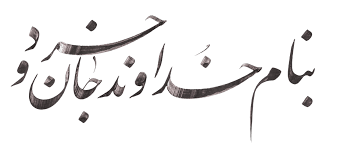 بنام خداوند جان و خرد